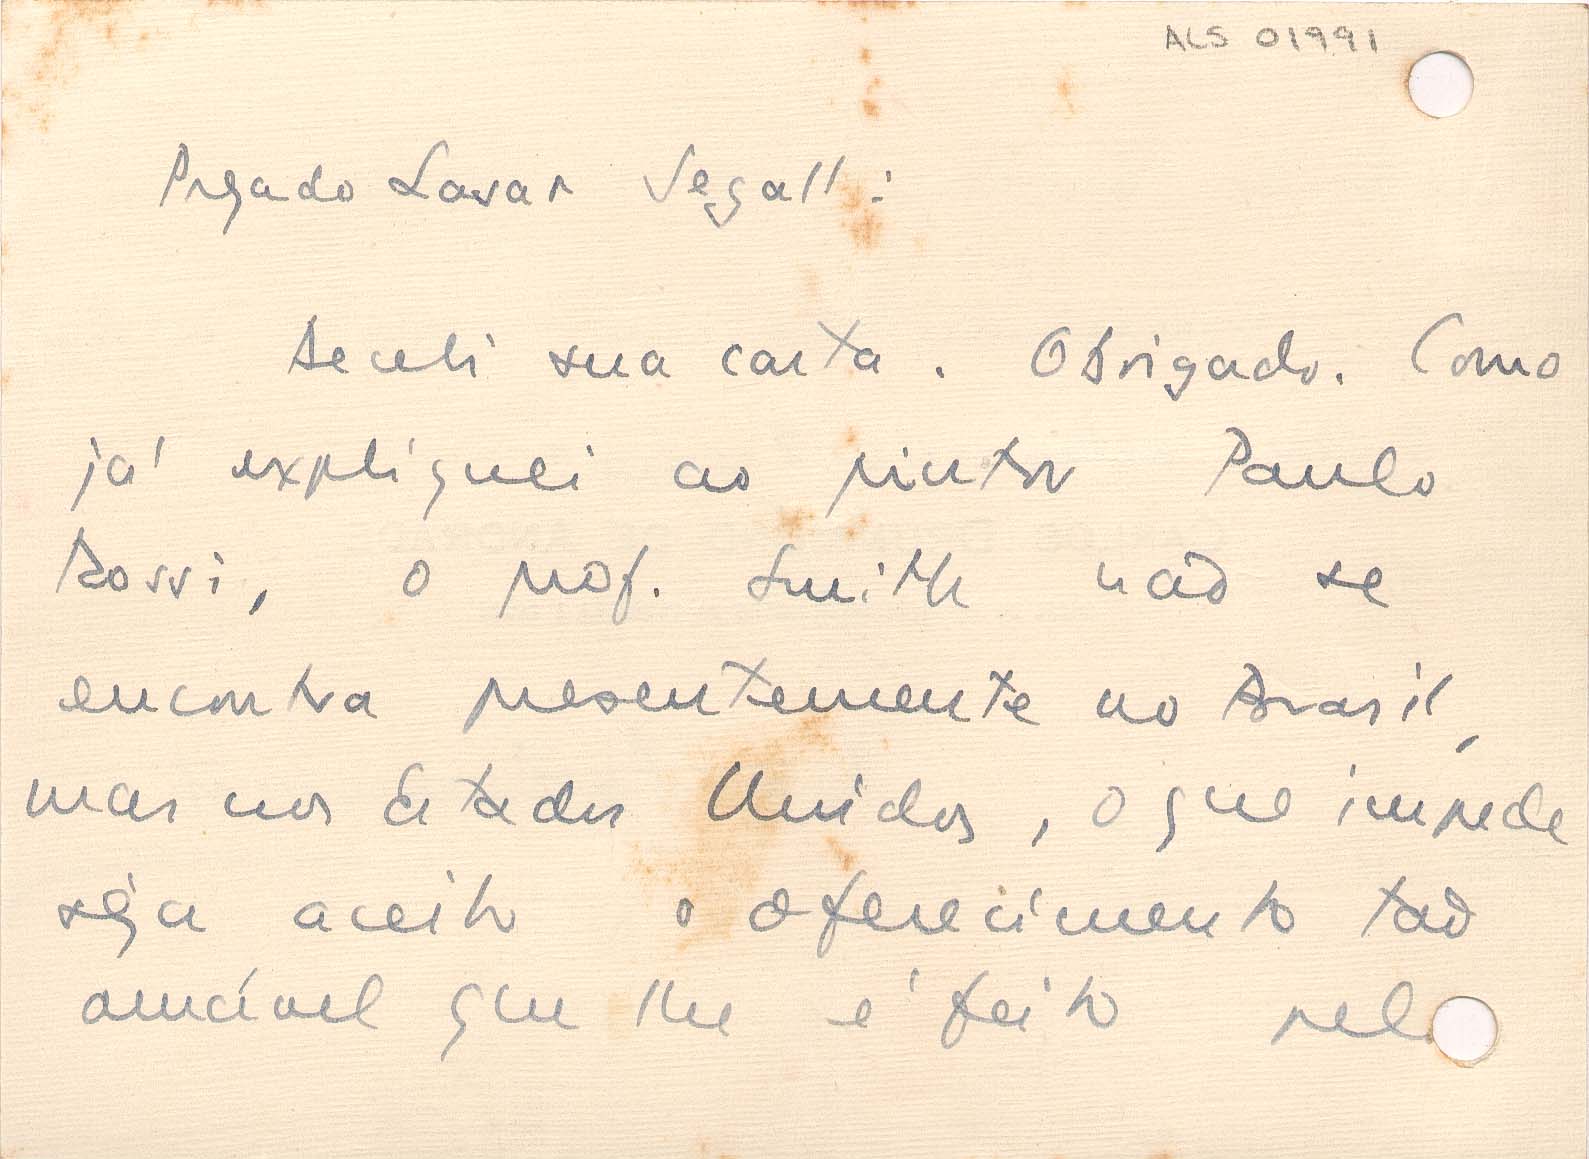 ALS 01991
Prezado Lasar Segall:
Recebi sua carta. Obrigado. Como
já expliquei ao pintor Paulo
Rossi, o prof. Smith não se
encontra presentemente no Brasil,
mas nos Estados Unidos, o que impede
seja aceito o oferecimento tão
amável que lhe é feito pel